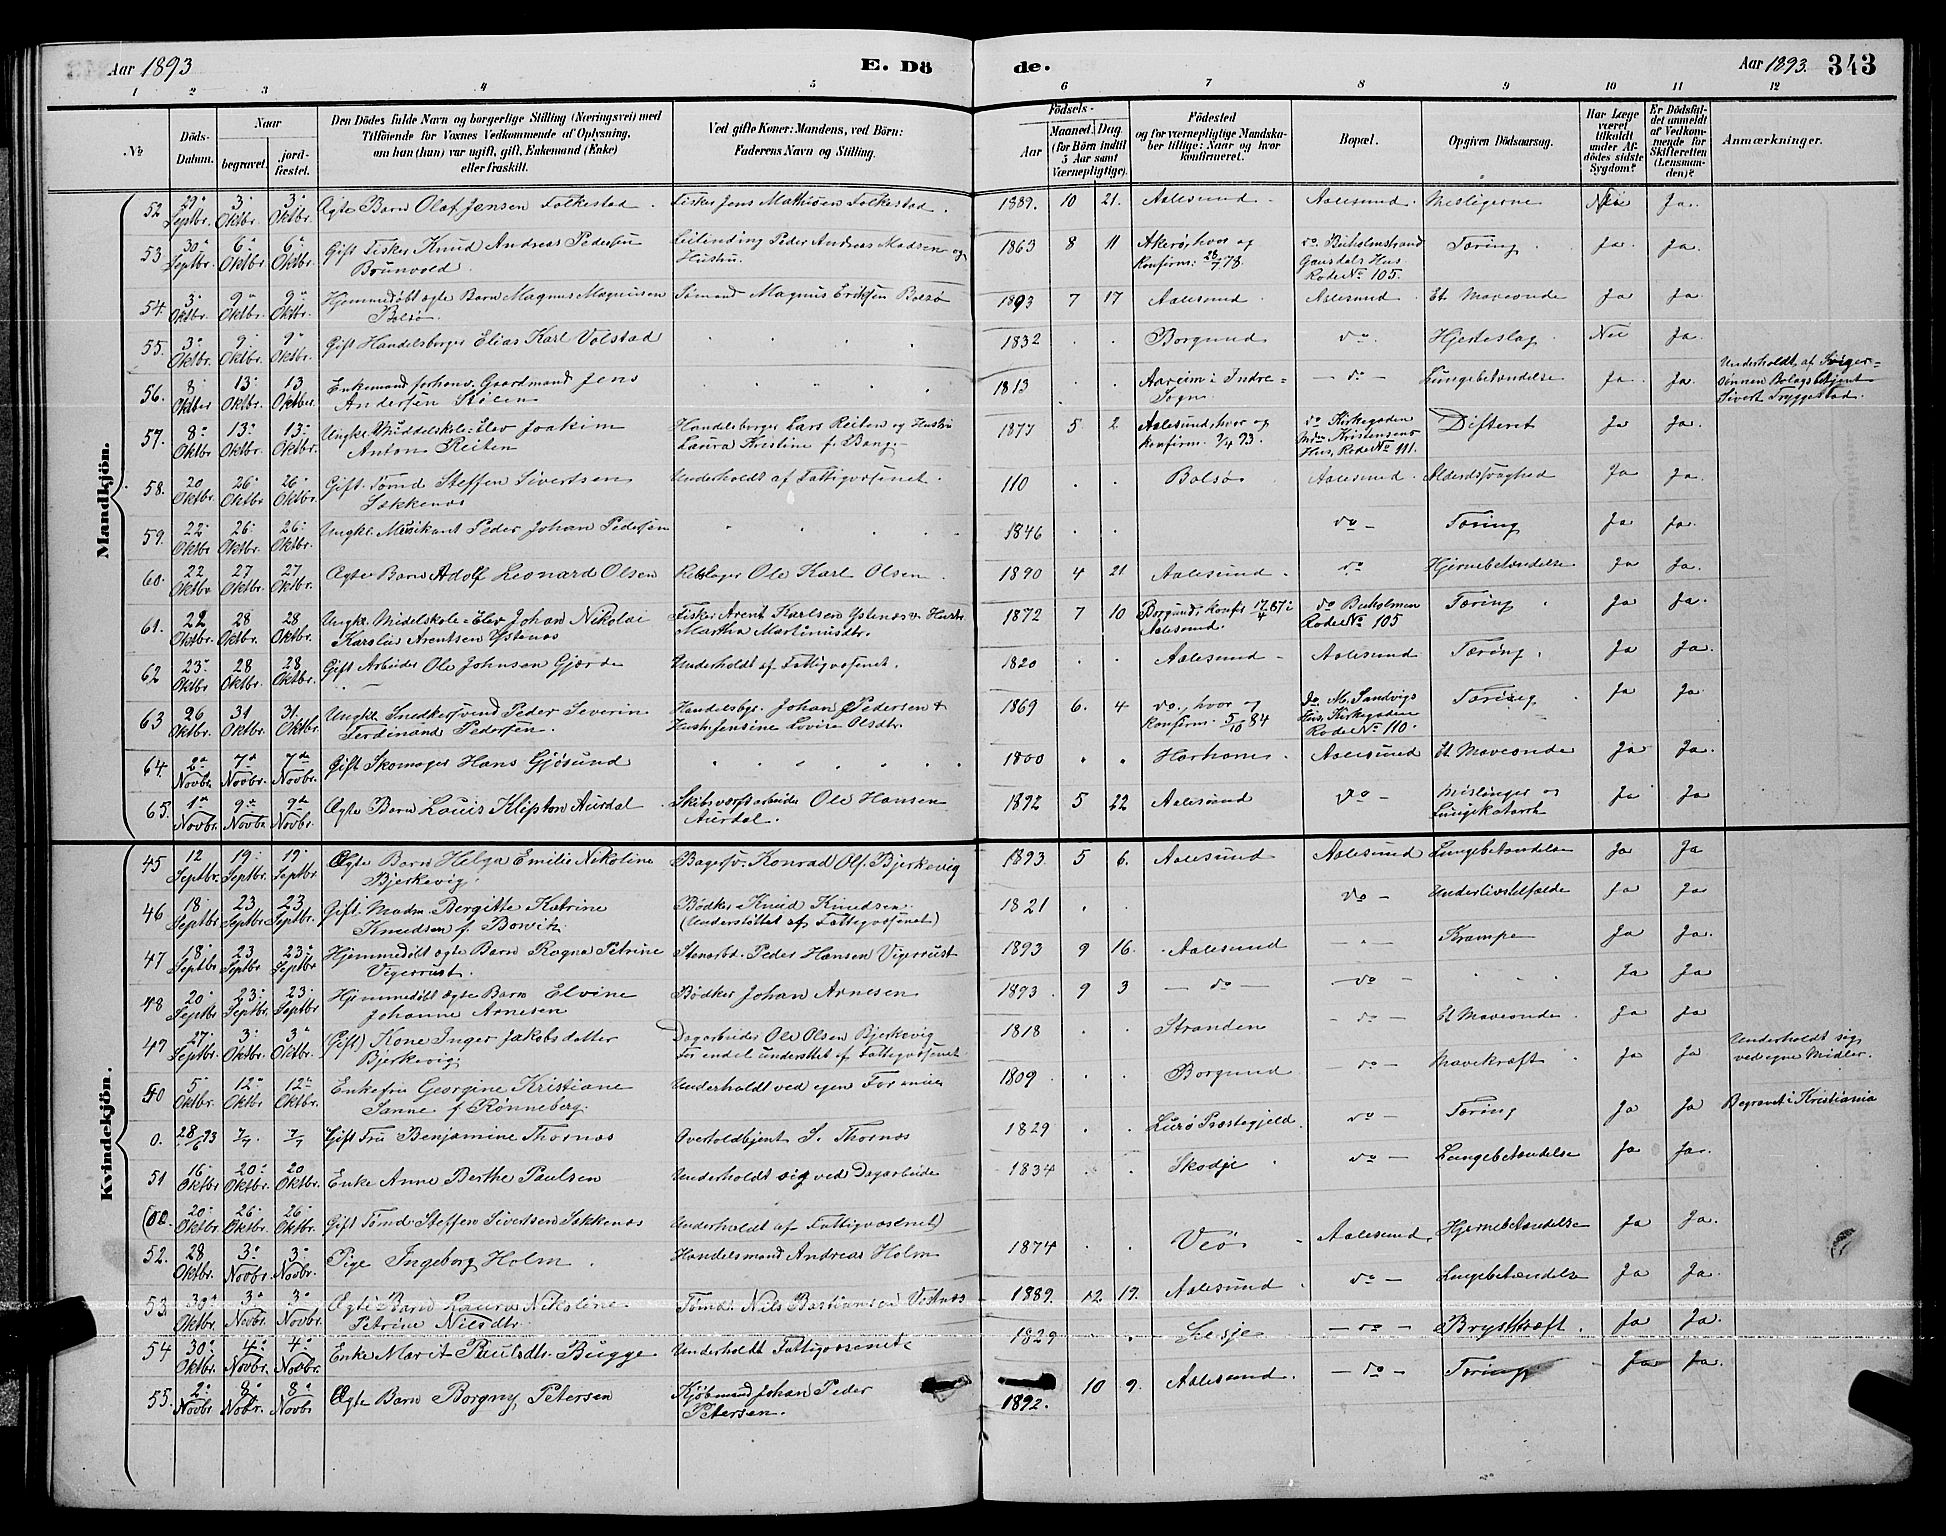 Aar 1893
E. Dö
de.
Aar 1893.
343
1
2
3
4
5
6
7
8
9
10
11
12
№
Döds-
Datum.
Naar
begravet.
jord-
fæstet.
Den Dödes fulde Navn og borgerlige Stilling (Næringsvei) med
Tilföiende for Voxnes Vedkommende af Oplysning,
om han (hun) var ugift, gift, Enkemand (Enke)
eller fraskilt.
Ved gifte Koner: Mandens, ved Börn:
Faderens Navn og Stilling.
Födsels-
Aar
Maaned.
Dag.
(for Börn indtil
5 Aar samt
Værnepligtige).
Födested
og for værnepligtige Mandska-
ber tillige: Naar og hvor
konfirmeret.
Bopæl.
Opgiven Dödsaarsag.
Har Læge
været
tilkaldt
under Af-
dödes sidste
Sygdom?
Er Dödsfal-
det anmeldt
af Vedkom-
mende for
Skifteretten
(Lensman-
den)?
Anmærkninger.
Mandkjön.
52 Septbr. 3 Oktbr. 3 Oktbr. Ægte Barn Olaf Jensen Folkestad. Fisker Jens Mathisen Folkestad. 1889. 10 21. Aalesund Aalesund. Meslingerne Nei Ja.
53. 30 Septbr. 6 Oktbr. 6 Oktbr. Gift Fisker Knud Andreas Pedersen Leilending Peder Andreas Madsen og 1863 8 11 Akerø, hvor og do Buholmstrand Tæring. Ja Ja
Brunvold. Hustru. konfirm: 28/7 78. Gausdals Hus
Rode № 105.
54. 3 Oktbr. 9 Oktbr. 9 Oktbr. Hjemmedøbt ægte Barn Magnus Magnusen Tømand Magnus Eriksen Bolsø 1893 7 17 Aalesund Aalesund Et Maveonde Ja Ja.
Bolsø.
55. 3 Oktbr. 9 Oktbr. 9 Oktbr. Gift Handelsborger Elias Karl Volstad 1832 Borgund do Hjerteslag. Nei Ja.
56. 8 Oktbr 13 Oktbr. 13 Oktbr Enkemand forhenv. Gaardmand Jens 1813 Aareim i Indre- do Lungebetændelse Ja. Ja. Underholdt af Sviger-
Andersen Stølen Sogn. sønnen Bolagsbetjent
Sivert Tryggestad.
57. 8 Oktbr 13 Oktbr. 13 Oktbr. Ungkl: Middelskole: Elev Joakim Handelsborger Lars Reiten og Hustru 1877 5 2 Aalesund, hvor og do Kirkegaden Difterit Ja Ja
Anton Reiten Laura Kristine f. Bang. konfirm. 2/4 93. Mdm Kristensens
Hus, Rode № 111.
58. 20 Oktbr. 26 Oktbr. 26 Oktbr. Gift Tømd Steffen Sivertsen Underholdt af Fattigvæsenet. 110 Bolsø Aalesund. Alderdsfvaghed Ja Ja
Sækkenæs
59. 22 Oktbr 26 Oktbr. 26 Oktbr. Ungkl. Musikant Peder Johan Pedersen 1846 do Tæring Ja Ja.
60. 22 Oktbr 27 Oktbr. 27 Oktbr. Ægte Barn Adolf Leonard Olsen Rebslager Ole Karl Olsen. 1890 4 21 Aalesund. do Hjernebetændelse Ja Ja.
61. 22 Oktbr. 28 Oktbr 28 Oktbr. Ungkl. Midelskole-Elev Johan Nikolai Fisker Arent Karlsen Ystenæs & Hustr. 1872 7 10 Borgund, konfr 17/4 87 i do Buholmen Tæring Ja Ja
Karslus Arentsen Ystenæs Martha Martinusdtr. Aalesund. Rode № 105
62 23 Oktbr 28 Oktbr. 28 Oktbr. Gift Arbeider Ole Johnsen Gjærde Underholdt af Fattigvæsenet. 1820 Aalesund Aalesund Tæring. Ja Ja.
63 26 Oktbr. 31 Oktbr. 31. Oktbr Ungkl. Snedkersvend Peder Severin Handelsbgr. Johan Pedersen & 1869 6. 4 do., hvor og do M. Sandvigs Tæring Ja Ja
Ferdinand Pedersen. Hustr. Jensine Lovise Olsdtr. konfirm. 5/10 84 Hus, Kirkegaden
Rode № 110.
64. 2 Novbr. 7 Novbr. 7de Novbr. Gift Skomager Hans Gjøsund 1800 Harham Aalesund Et Maveonde Ja Ja.
65. 1 Novbr. 9 Novbr 9de Novbr. Ægte Barn Louis Klipton Aurdal Skibsværftarbeider Ole Hansen 1892 5 22 Aalesund do Meslinger og Ja Ja
Aurdal. Lungekatarrh
Kvindekjön.
45 12 Septbr. 19 Septbr. 19 Septbr Ægte Barn Helga Emilie Nikoline Bagersv. Konrad Ol. Bjerkevig 1893. 5 6. Aalesund Aalesund Lungebetændelse Ja Ja
Bjerkevig.
46 18 Septbr 23 Septbr 23 Septbr. Gift. Madm. Bergitte Katrine Bødker Knud Knudsen. 1821 do Underlivstilfælde Ja Ja
Knudsen f. Borvik. (Understøttet af Fattigvæsenet)
47 18 Septbr 23 Septbr 23 Septbr Hjemmedøbt ægte Barn Ragna Petrine Stenarbd. Peder Hansen Vigerust 1893 9 16. Aalesund Krampe Ja Ja.
Vigerust.
48 20 Septbr 23 Septbr 23 Septbr Hjemmedøbt ægte Barn Elvine Bødker Johan Arnesen 1893. 9 3 do do Ja Ja
Johanne Arnesen
49 27 Septbr. 3 Oktbr. 3 Oktbr. (Gift) Kone Inger Jakobsdatter Dagarbeider Ole Olsen Bjerkevig 1818 Stranden do Et Maveonde Ja Ja Underholdt sig
Bjerkevig For endel understtet af Fattigvæsenet ved egne Midler.
50 5 Oktbr. 12 Oktbr. 12 Oktbr. Enkefru Georgine Kristiane Underholdt ved egen Formue 1809 Borgund do Mavekræft Ja Ja
Sanne f. Rønneberg.
0. 28/6 93 7/7. 7/7 Gift Fru Benjamine Thornæs Overtoldbtjent S. Thornæs 1829 Lurø Præstegjeld. do Tæring Ja Ja Begravet i Kristiania
51 16 Oktbr 20 Oktbr. 20 Oktbr. Enke Anne Berthe Paulsen Underholdt sig ved Dagarbeide 1834 Skodje do Lungebetændelse Ja Ja.
20 Oktbr. 26 Oktbr. 26 Oktbr. Gift Tømd Steffen Sivertsen Sækkenæs Underholdt af Fattigvæsenet)
52. 28 Oktbr. 3 Novbr. 3 Novbr. Pige Ingeborg Holm Handelsmand Andreas Holm 1874 Veø Aalesund. Hjernebetændelse Ja Ja.
53 30 Oktbr. 3 Novbr. 3 Novbr. Ægte Barn Laura Nikoline Tømd. Nils Bastiansen Vestnæs 1889. 12 19. Aalesund do Lungebetændelse Ja Ja.
Petrine Nilsdtr.
54 30 Oktbr. 4 Novbr. 4 Novbr. Enke Marit Paulsdtr. Bugge Underholdt Fattigvæsenet 1829 Lesje do Brystkræft. Ja Ja.
55. 2 Novbr. 8 Novbr. 8 Novbr Ægte Barn Borgny Petersen Kjøbmand Johan Peder 1892. 10 9. Aalesund. do Tæring Ja Ja.
Petersen.